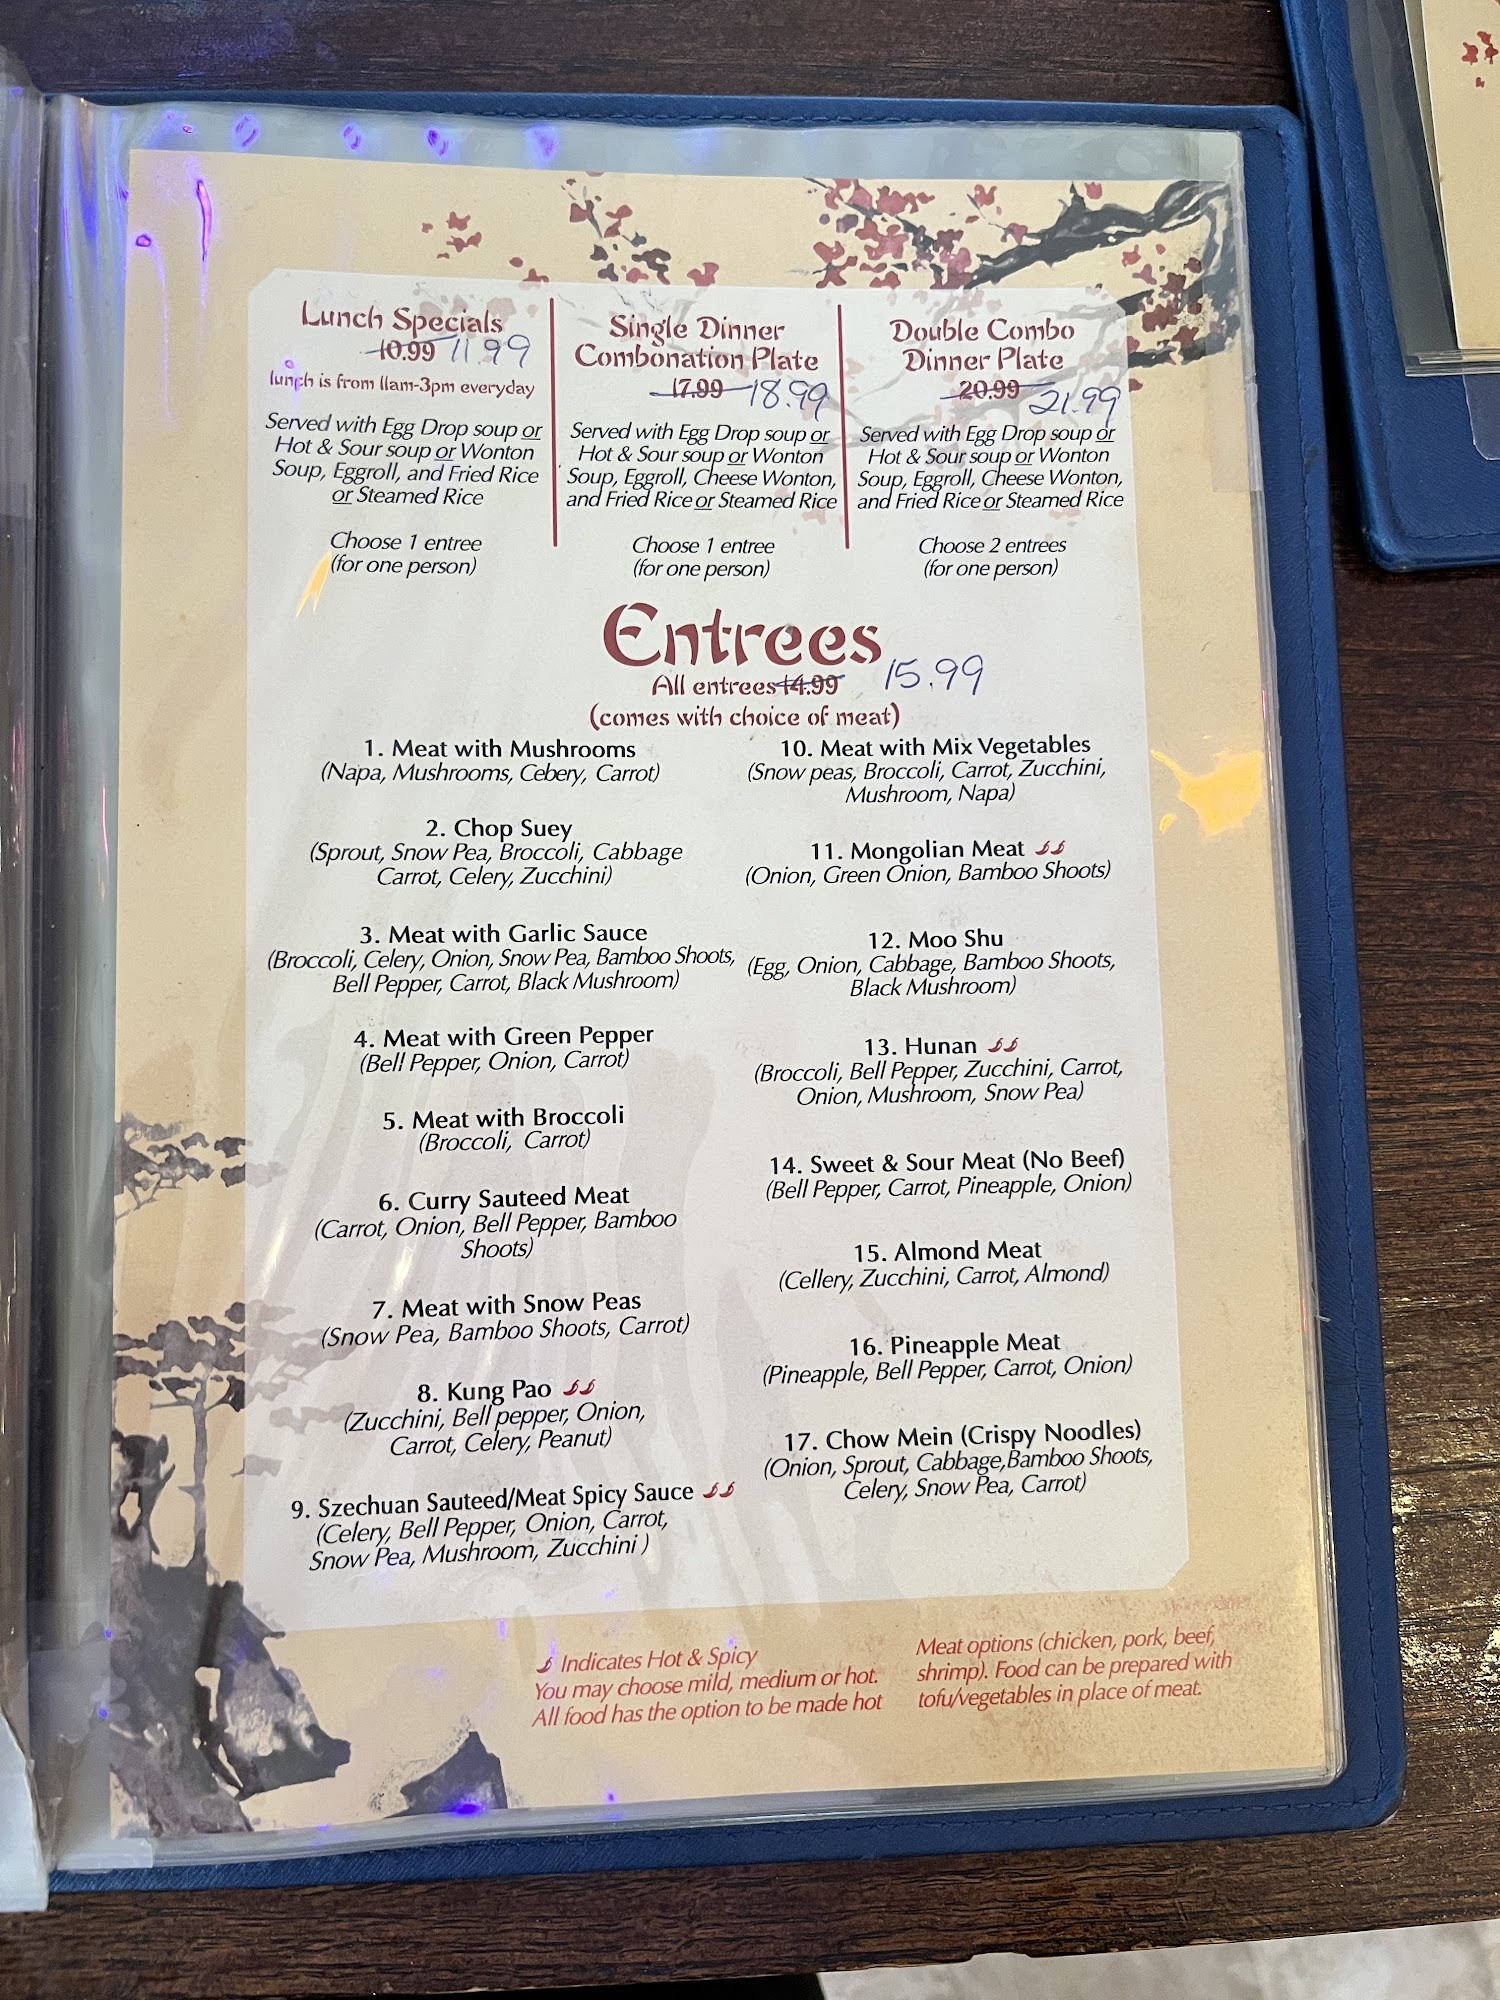 Lunch Specials
10.99 11.99
lunch is from 11am-3pm everyday
Served with Egg Drop soup or
Hot & Sour soup or Wonton
Soup, Eggroll, and Fried Rice
or Steamed Rice
Choose 1 entree
(for one person)
Single Dinner
Combonation Plate
17.99 18.99
Served with Egg Drop soup or
Hot & Sour soup or Wonton
Soup, Eggroll, Cheese Wonton,
and Fried Rice or Steamed Rice
Choose 1 entree
(for one person)
Double Combo
Dinner Plate
20.99 21.99
Served with Egg Drop soup or
Hot & Sour soup or Wonton
Soup, Eggroll, Cheese Wonton,
and Fried Rice or Steamed Rice
Choose 2 entrees
(for one person)
Entrees
All entrees 14.99 15.99
(comes with choice of meat)
1. Meat with Mushrooms
(Napa, Mushrooms, Cebery, Carrot)
2. Chop Suey
(Sprout, Snow Pea, Broccoli, Cabbage
Carrot, Celery, Zucchini)
3. Meat with Garlic Sauce
(Broccoli, Celery, Onion, Snow Pea, Bamboo Shoots,
Bell Pepper, Carrot, Black Mushroom)
4. Meat with Green Pepper
(Bell Pepper, Onion, Carrot)
5. Meat with Broccoli
(Broccoli, Carrot)
6. Curry Sauteed Meat
(Carrot, Onion, Bell Pepper, Bamboo
Shoots)
7. Meat with Snow Peas
(Snow Pea, Bamboo Shoots, Carrot)
8. Kung Pao
(Zucchini, Bell pepper, Onion,
Carrot, Celery, Peanut)
9. Szechuan Sauteed/Meat Spicy Sauce
(Celery, Bell Pepper, Onion, Carrot,
Snow Pea, Mushroom, Zucchini )
10. Meat with Mix Vegetables
(Snow peas, Broccoli, Carrot, Zucchini,
Mushroom, Napa)
11. Mongolian Meat
(Onion, Green Onion, Bamboo Shoots)
12. Moo Shu
(Egg, Onion, Cabbage, Bamboo Shoots,
Black Mushroom)
13. Hunan
(Broccoli, Bell Pepper, Zucchini, Carrot,
Onion, Mushroom, Snow Pea)
14. Sweet & Sour Meat (No Beef)
(Bell Pepper, Carrot, Pineapple, Onion)
15. Almond Meat
(Cellery, Zucchini, Carrot, Almond)
16. Pineapple Meat
(Pineapple, Bell Pepper, Carrot, Onion)
17. Chow Mein (Crispy Noodles)
(Onion, Sprout, Cabbage,Bamboo Shoots,
Celery, Snow Pea, Carrot)
Indicates Hot & Spicy
You may choose mild, medium or hot.
All food has the option to be made hot
Meat options (chicken, pork, beef,
shrimp). Food can be prepared with
tofu/vegetables in place of meat.